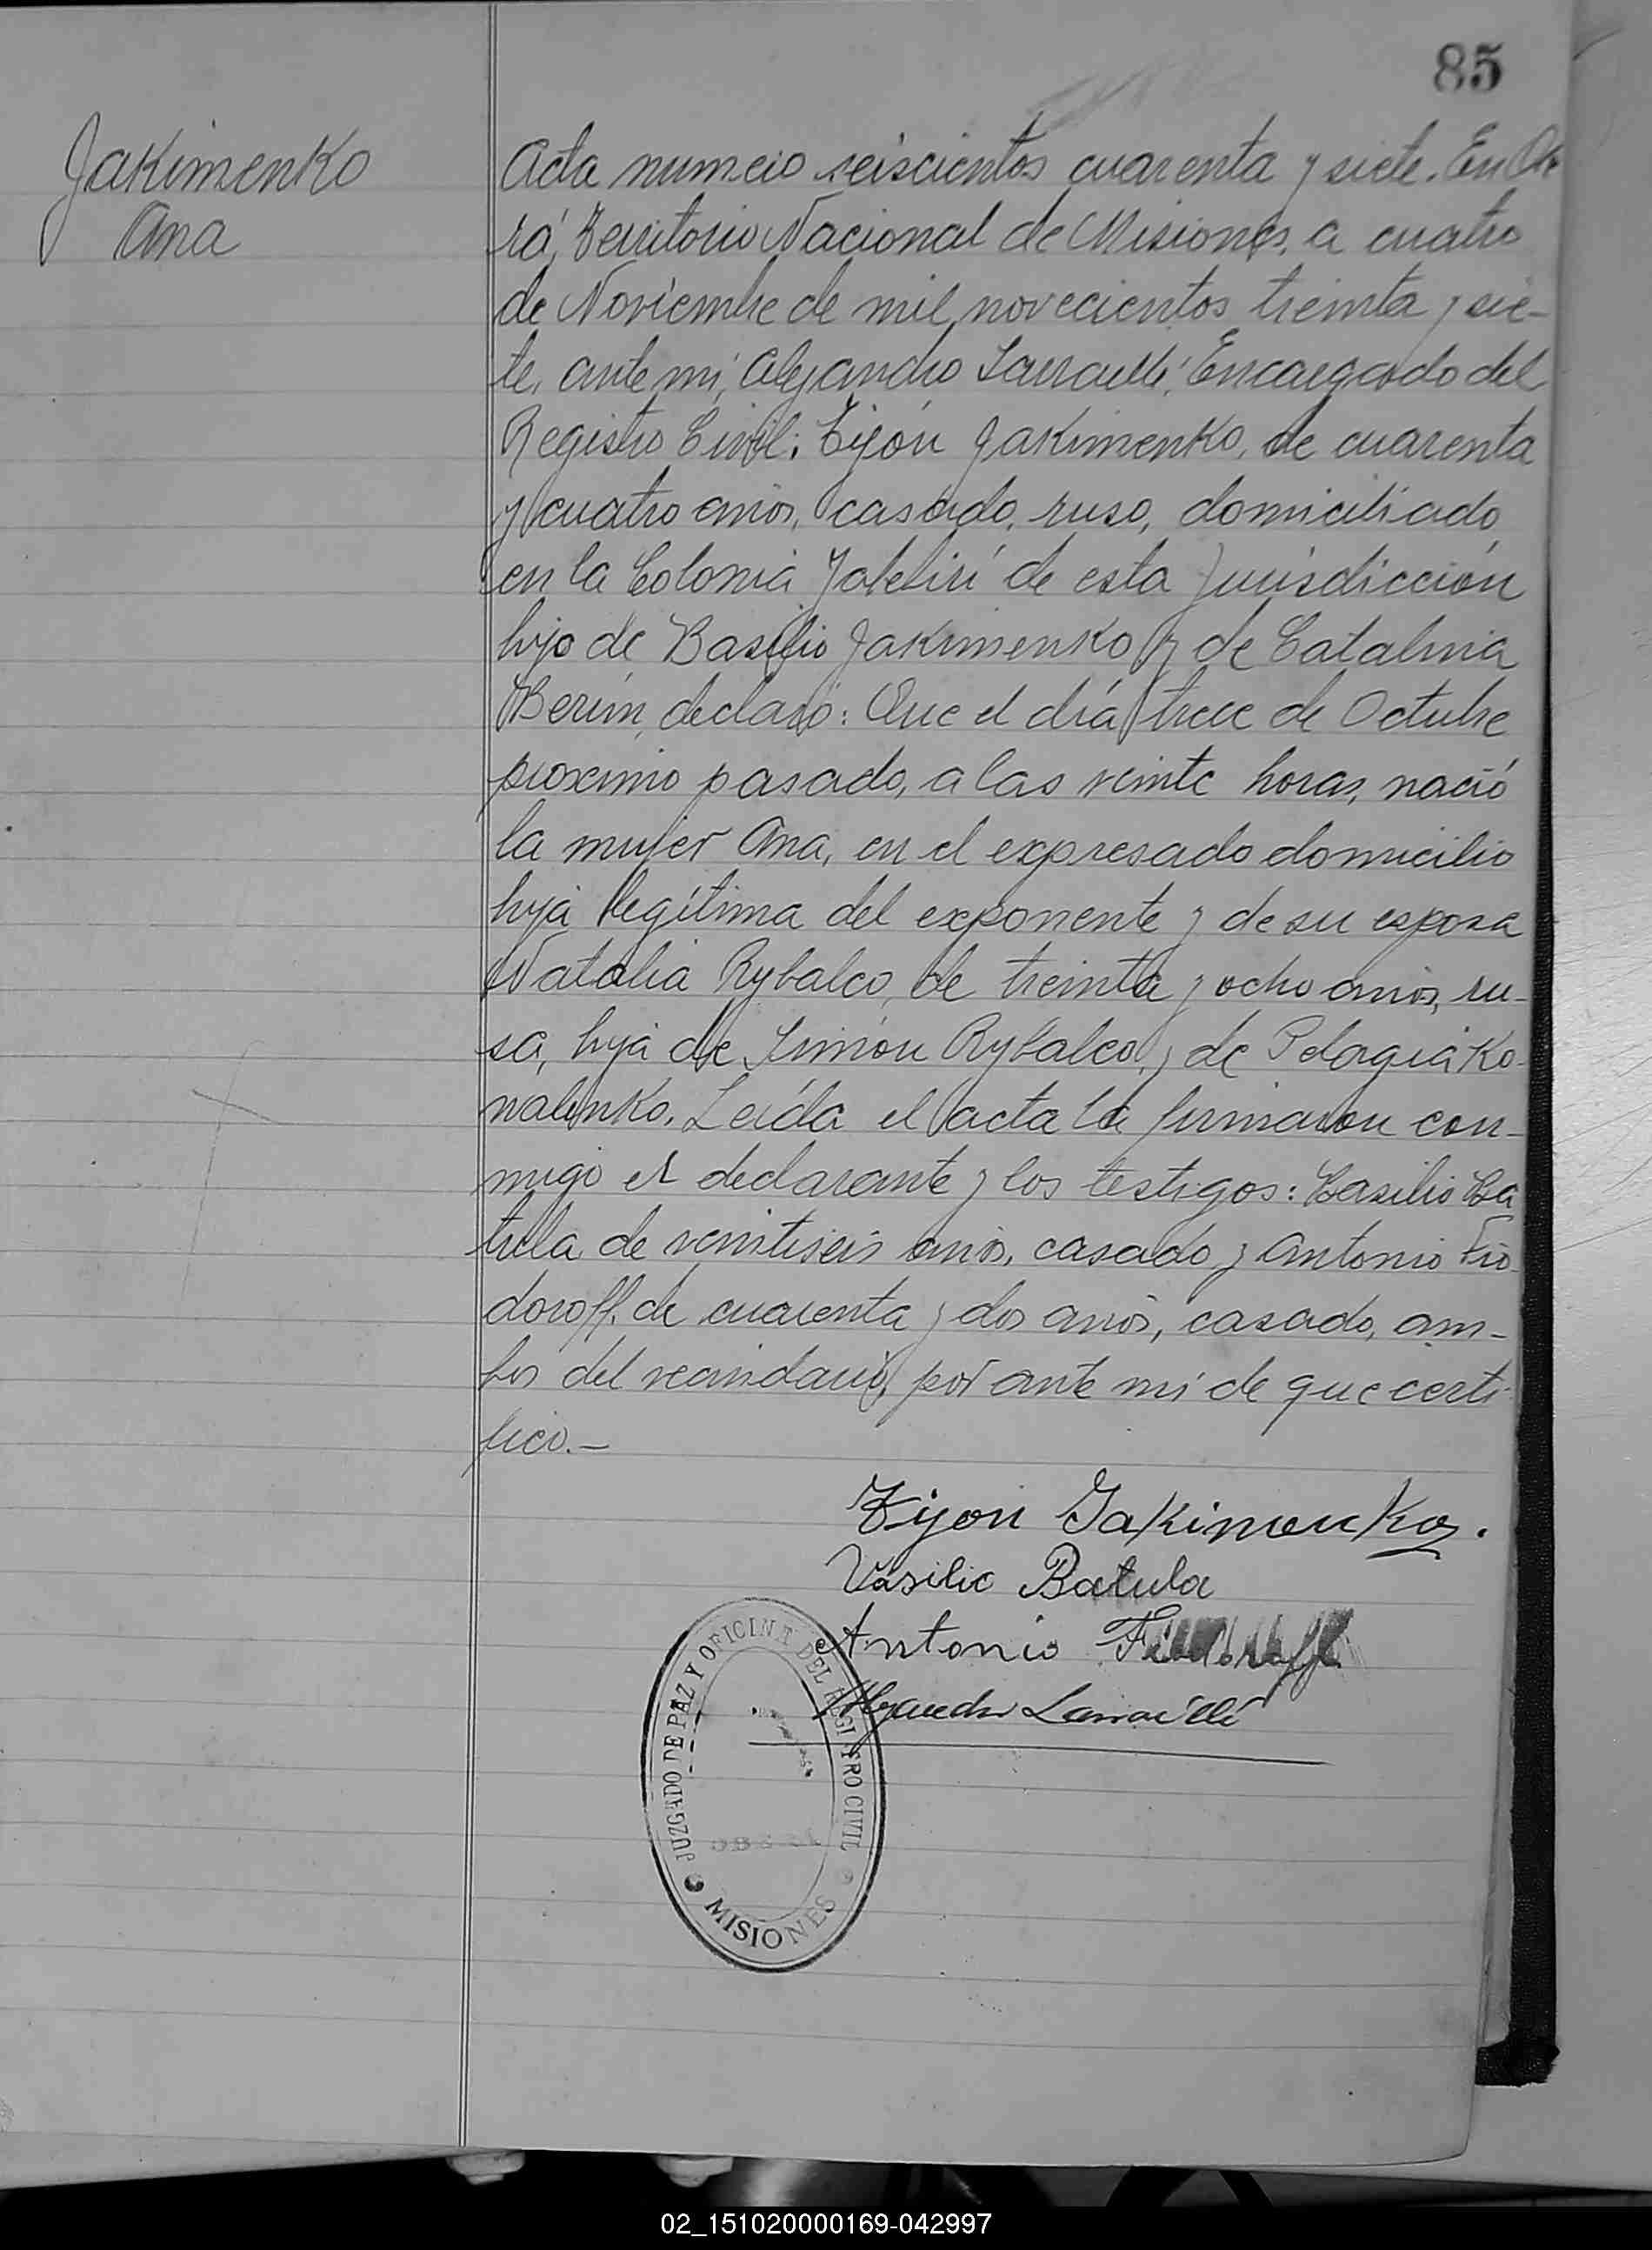 85
Jakimenko
Ana
Acta numero seiscientos cuarenta y siete. En Obe-
rá, Territorio Nacional de Misiones, a cuatro
de Noviembre de mil novecientos treinta y sie-
te, ante mi, Alejandro Encargado del
Registro Civil: Tijón Jakimenko, de cuarenta
y cuatro años, casado, ruso, domiciliado
en la Colonia Yabebirí de esta jurisdicción
hijo de Basilio Jakimenko y de Catalina
Berim, declaró: Que el día trece de Octubre
proximo pasado, a las veinte horas, nació
la mujer Ana, en el expresado domicilio
hija legítima del exponente y de su esposa
Natalia Rybalco, de treinta y ocho años, ru-
sa, hija de Simón Rybalco, y de Pelagia Ko-
walenko. Leída el acta la firmaron con-
migo el declarante y los testigos: Basilio Ba
tulla de veintiseis años, casado y Antonio Fio
doroff, de cuarenta y dos años, casado, am-
bos del vecindario, por ante mi de que certi-
fico.-
Tijon Jakimenko.
Vasilio Batula
Antonio
Alejandro
JUZGADO DE PAZ Y OFICINA DEL REGISTRO CIVIL
MISIONES
02_151020000169-042997